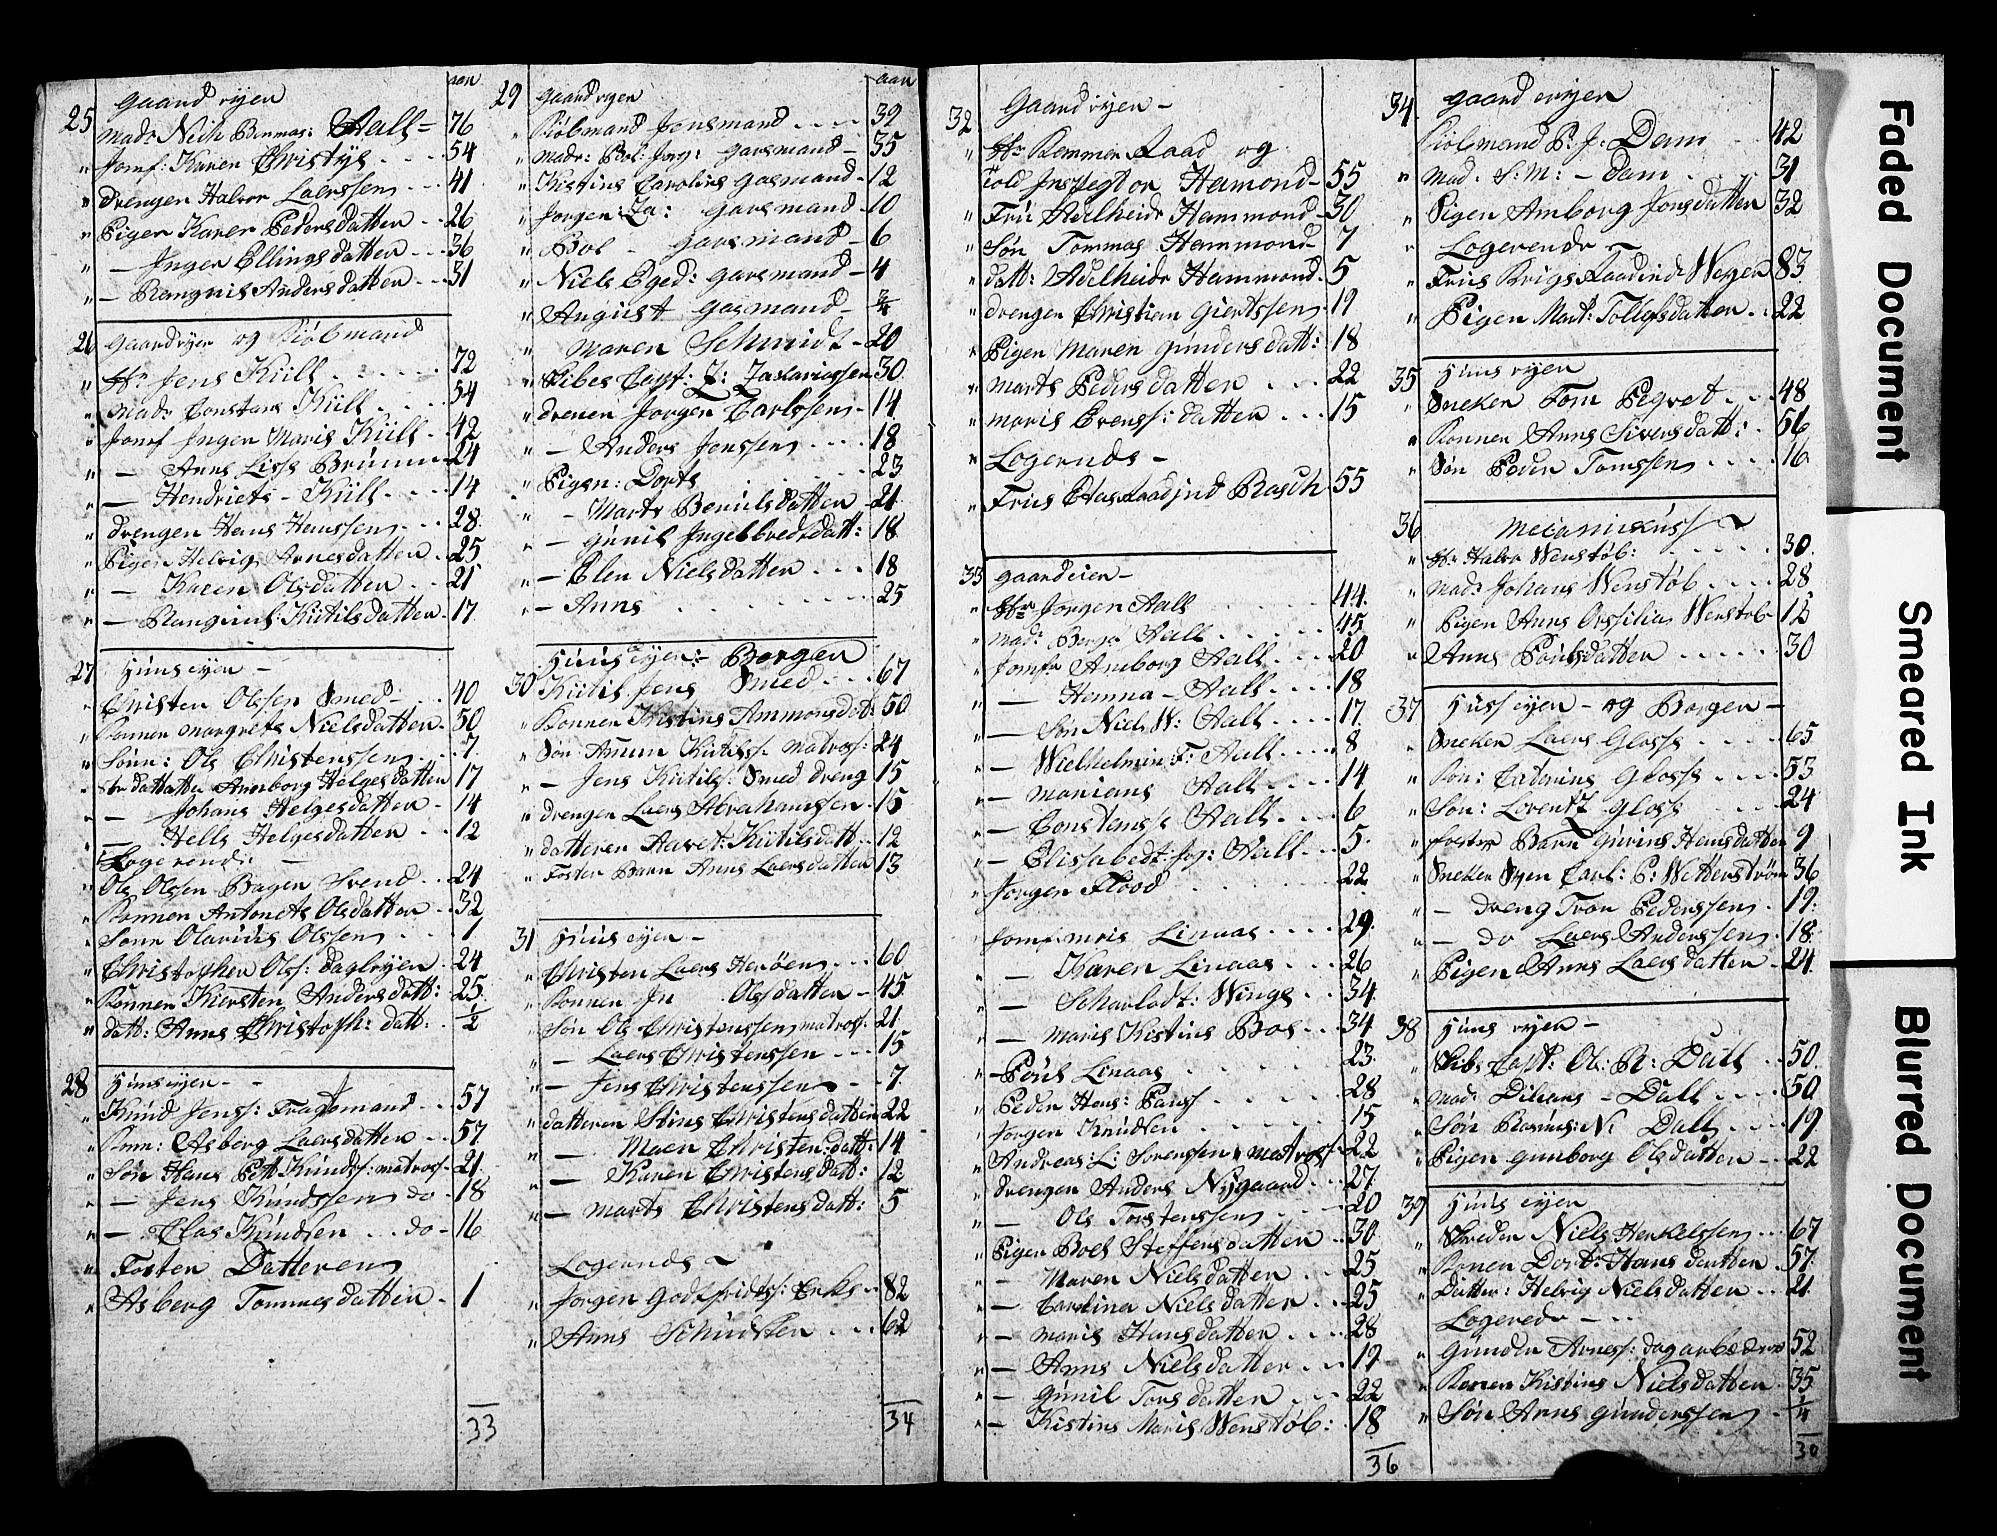 aar
25 Gaard eyer
Mad: Nich Benmas: Aall 76
" Jomf: Karen Christys 54
" Drengen Halvor Laerssen 41
" Pigen Karen Pedersdatter 26
" — Inger Ellingsdatter 36
" — Rangnil Andersdatter 31
26 Gaardeyer og Kiöbmand
" Hr Jens Kiill 72
" Mad: Constans Kiill 54
" Jomf Inger Maris Kiill 42
" — Anne Lisse Brünn 24
" — Hendriete Kiill 14
" Drengen Hans Hanssen 28
" Pigen Helvig Arnesdatter 25
" — Karen Olsdatter 21
" — Ranguil: Kittilsdatter 17
27 Huus eyer —
" Christen Olsen Smed 40
" Konnen Margrete Nielsdatter 50
" Sönn: Ole Christenssen 7
" Ste dattatter Anborg Helgesdatter 17
" — Johans Helgesdatter 14
" — Helle Helgesdatter 12
Logerende —
" Ole Olssen Bager Svend 24
" Konnen Antonets Olsdatter 32
" Sönn Olavius Olssen 1
" Christopher Ols: Daglejer 24
" Konnen Kiersten Andersdatt: 25
" datt: Anne Christoph: datt: 1/2
28 Huus eyer —
" Knud Jenss: Fragtemand 57
" Konn: Asberg Laersdatter 57
" Sön Hans Pett Knudss: matros 21
" — Jens Knudssen do 18
" — Clas Knudsen do 16
" Foster Datteren
" Asberg Tommesdatter 1
33
aar
29 Gaard eyer
" Kiöbmand Jonsmand 39
" Madr: Bol: Jörg: Garsmand 35
" Kistine Caroline Gasmand 12
" Jorgen: Za: Garsmand 10
" Bol — Garsmand 6
" Niels Eged: Garsmand 4
" August Gasmand 3/4
" Maren Schmidt 20
" Skibes Capt: Z: Zakariassen 30
" drenen Jorgen Carlssen 14
" — Anders Jenssen 18
" Pigen: Dorte 23
" — Marte Bentilsdatter 21
" — Gunil Ingelbredsdatt: 18
" — Elen Nielsdatter 18
" — Anne 25
Huus eyer: Borger
30 Kittil Jens Smed 67
" Konnen Kistine Ammonsdat: 50
" Sön Amun Kittilss: matros: 24
" — Jens Kittils: Smed dreng 15
" drengen Laers Abrahamssen 15
" datteren Aaret: Kittilsdatt 12
" Foster Barn Anne Laersdatter 13
31 Huus eyer —
" Christen Laers Heröen 60
" Konnen In Olsdatter 45
" Sön Ole Christenssen matros: 21
" — Laers Christenssen 15
" — Jens Christenssen 7
" datteren Stine Christensdatter 22
" — Maren Christen: datt: 14
" — Karen Christensdatt: 12
" — Marte Christensdatt: 5
Logernds
" Jorgen Godtfridss: Enks 82
" Anne Schudsten 62
34
32 Gaard eyer —
" Hr Kemmer Raad og
Told Inspegtor Hamond 55
" Frue Adelheide Hammond 30
" Sön Tommas Hammond 7
" datt: Adelheide Hammond 5
" drengen Christian Giertssen 19
" Pigen Maren Gundersdatt: 18
" Marte Pedersdatter 22
" Maris Evenss: datter 15
" Logernds —
" Frue Etasraadinde Rasch 55
33 Gaardeier —
" Hr Jorgen Aall 44
" Mad: Borge Aall 45
" Jomfr Amborg Aall 20
" — Hanna Aall 18
" — Sön Niels W: Aall 17
" — Wielhelmin F: Aall 8
" — Mariane Aall 14
" — Constanse Aall 6
" — Elisabedt: Jör: Aall 5
" Jorgen Flood 22
" Jomf: Mris Linaas 29
" — Karen Linaas 26
" — Scharlodt: Winge 34
" — Maris Kistine Boe 34
" — Poul Linaas 23
" Peder Hans: Pans 28
" Jorgen Knudsen 15
" Andreas: L: Sorenssen matros 22
" drengen Anders Nygaard 27
" — Ole Torstenssen 20
" Pigen Boel Steffensdatter 30
" — Maren Nielsdatter 25
" — Carolina Nielsdatter 25
" — Maris Hansdatter 28
" — Anne Nielsdatter 19
" — Gunil Torsdatter 22
" — Kistine Maris Wenstöb: 18
36
34 Gaard eyer
Kiöbmand P: J: Dam 42
" Mad: S: M: — Dam 31
" Pigen Amborg Jonsdatter 32
" Logerende —
" Frue Krigs Raadinde Weyer 83
" Pigen Mart: Tollefsdatter 22
35 Huus eyer
" Sneker Tom Pegret 48
" Konnen Anne Siversdatt: 56
" Sön Peder Tomssen 16
36 Mecanickuss
" Hr Halvor Wenstöb: 30
" Mad: Johans Wenstöb 28
" Pigen Anne Orssilia Wenstöb 12
" Anne Poulsdatter 30
37 Huss eyer — og Borger —
" Sneker Laers Glosse 65
" Kon: Caterine Glosse 53
" Sön: Lorentz Gloss 24
" foster Barn Gurine Hansdatter 9
" Sneker Svен Carl: P: Wetterström 36
" — dreng Tron Pederssen 19
" — do Laers Anderssen 18
" Pigen Anne Laersdatter 24
38 Huus eyer —
" Skibs Capt: Ol: R: Dall 50
" Mad: Diliane — Dall 50
" Sön Rasmus: N: Dall 19
" Pigen Gunborg Olsdatter 22
39 Huus eyer
" Skreder Niels Henkelssen 67
" Konen Dort: Hansdautter 57
" Datter: Helvig Nielsdatter 21
Logerede —
" Gunder Arness: dagarbeder 52
" Konen Kistine Nielsdatter 35
" Sön Arne Gunderssen 1/4
30
Faded Document
Smeared Ink
Blurred Document